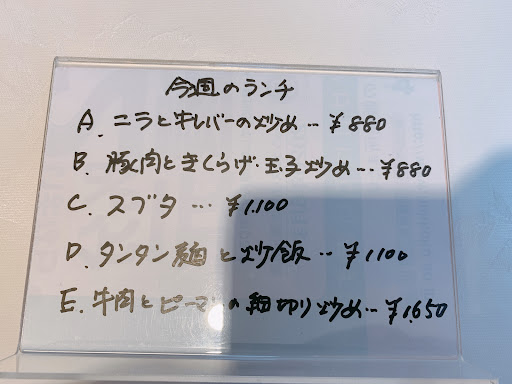 今週のランチ
A. ニラと牛レバーの炒め…¥880
B. 豚肉ときくらげ・玉子炒め…¥880
C. スブタ…¥1.100
D. タンタン麺と炒飯…¥1100
E. 牛肉とピーマンの細切り炒め…¥1.650